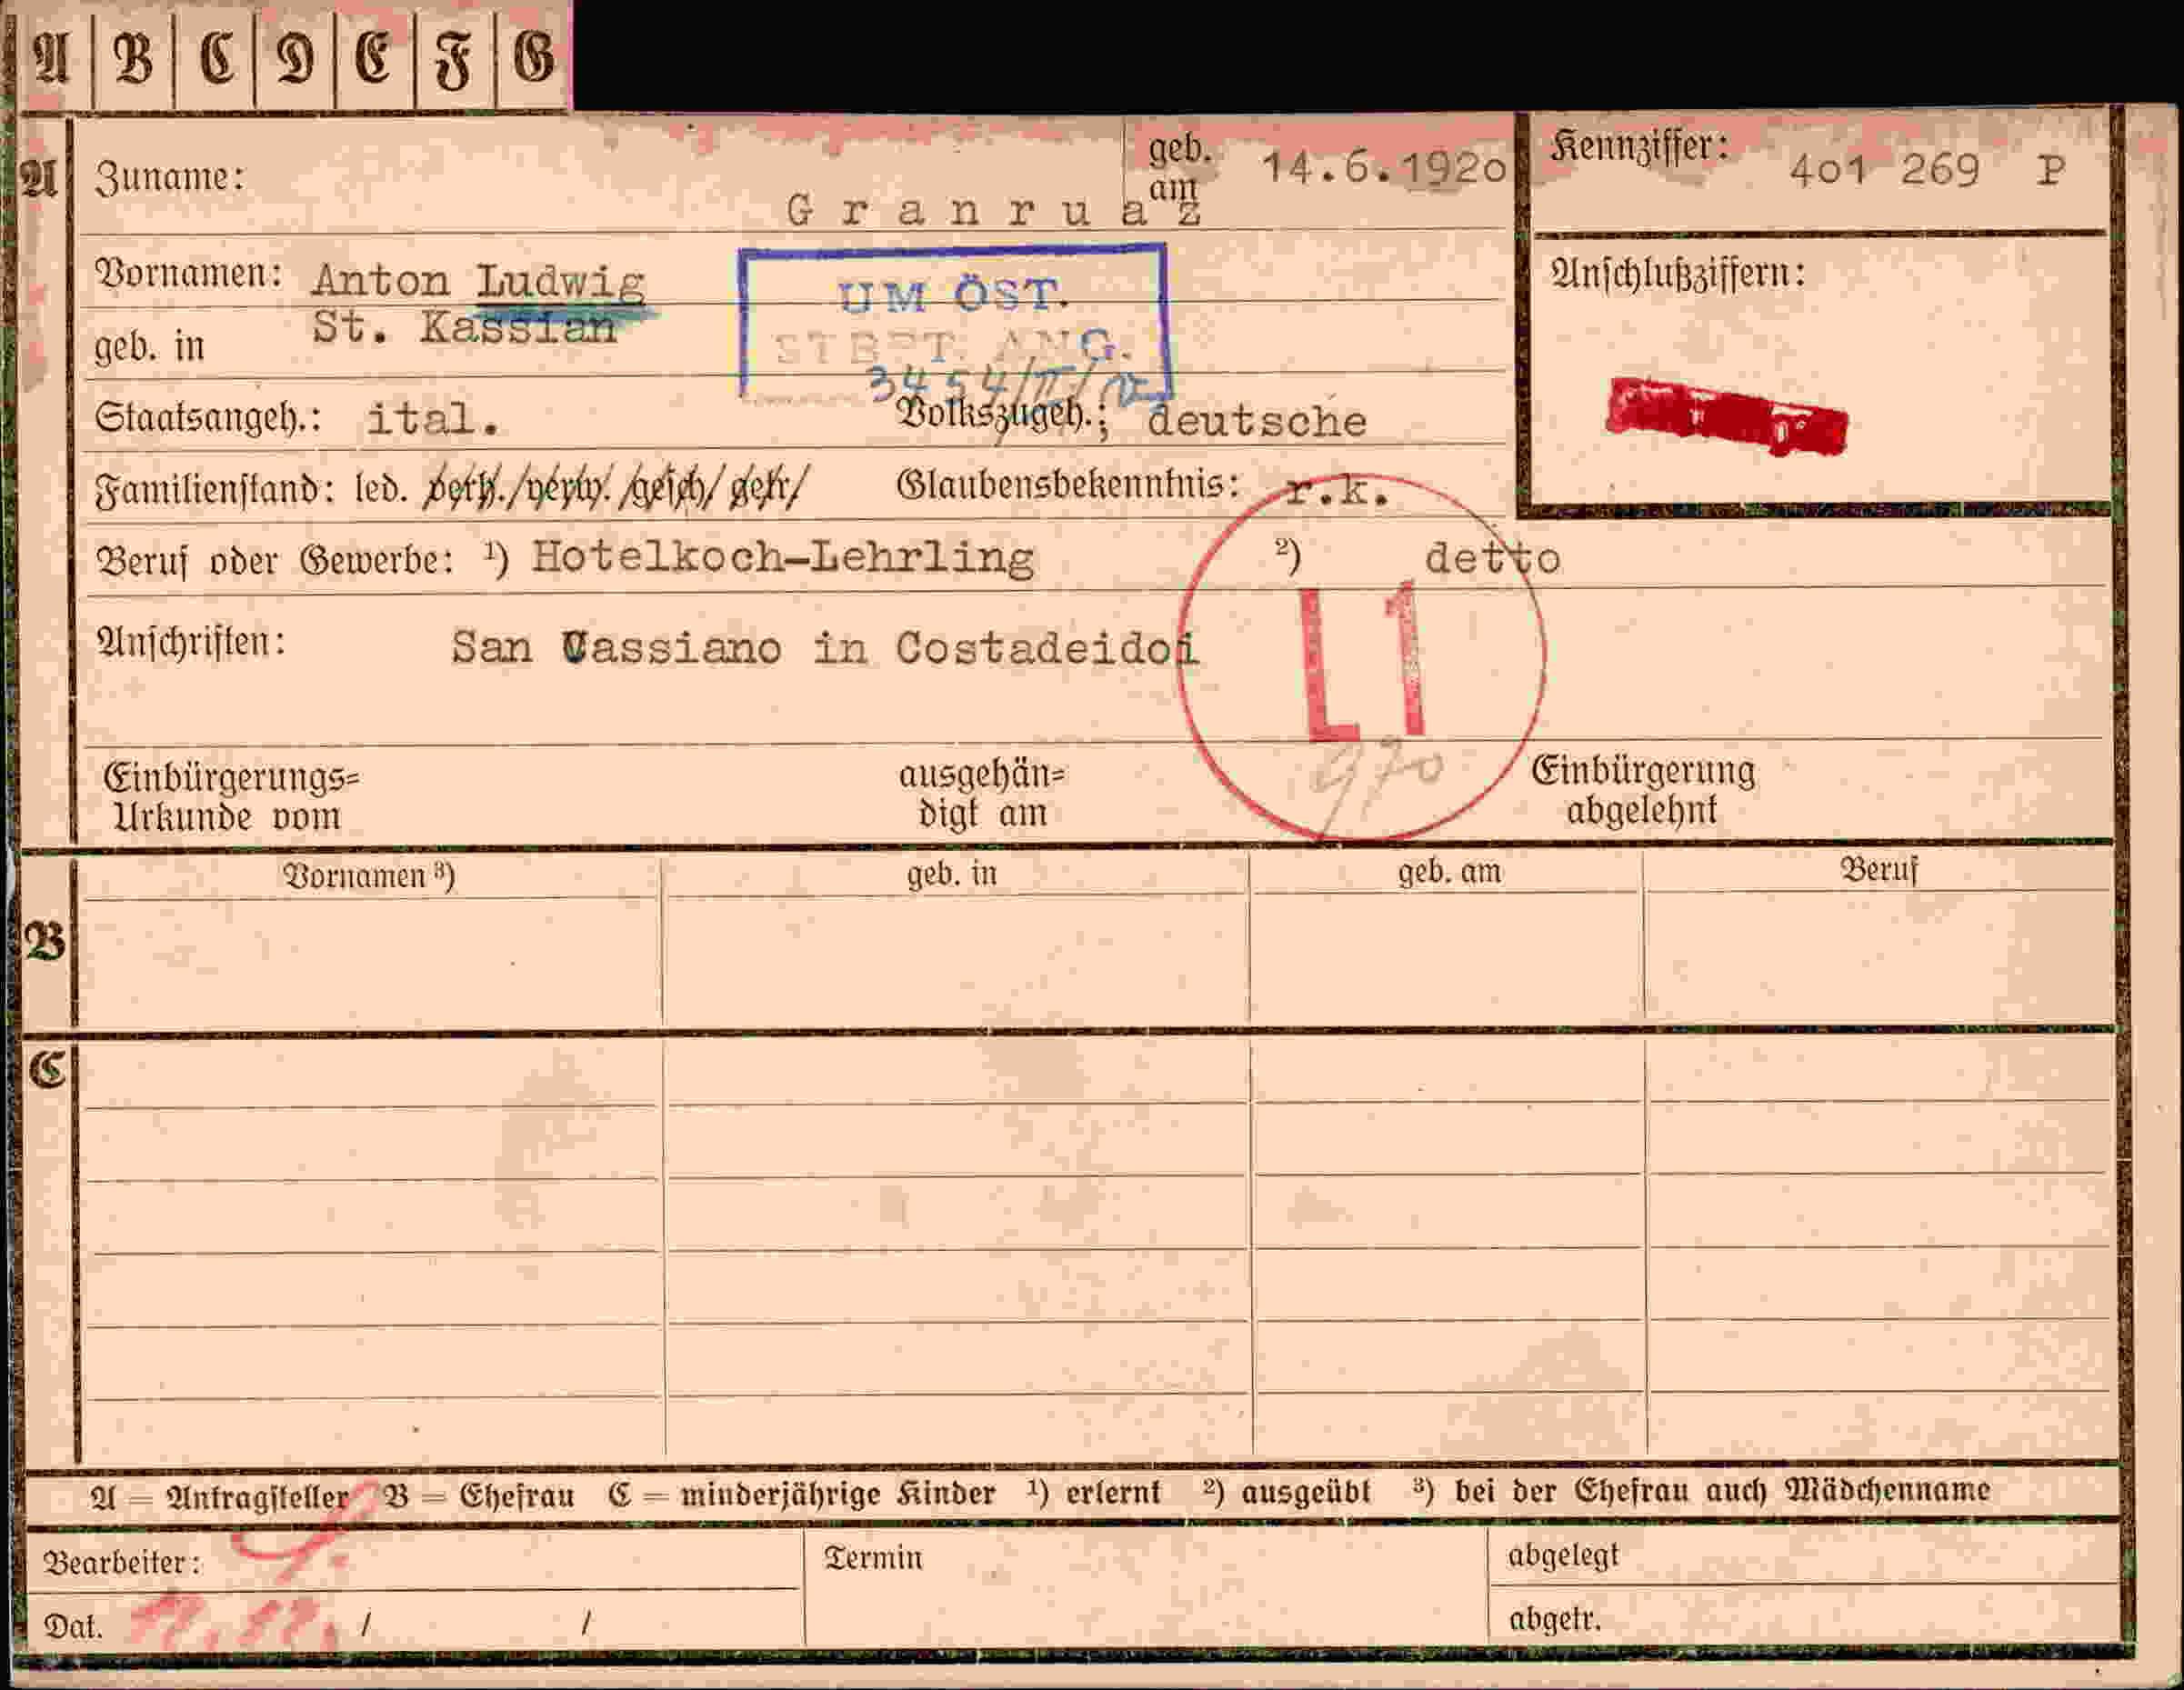 A B C D E F G
A Zuname: Granruaz geb. am 14.6.1920 Kennziffer: 4o1 269 P
Vornamen: Anton Ludwig
UM ÖST.
Anschlußziffern:
geb. in St. Kassian
STBST. ANG.
Staatsangeh.: ital. Volkszugeh.: deutsche
Familienstand: led. verh./verw./gesch/getr/ Glaubensbekenntnis: r.k.
Beruf oder Gewerbe: ¹) Hotelkoch-Lehrling ²) detto
Anschriften: San Cassiano in Costadeidoi
L1
970
Einbürgerungs=
Urkunde vom
ausgehän=
digt am
Einbürgerung
abgelehnt
B Vornamen ³) geb. in geb. am Beruf
C
A = Antragsteller B = Ehefrau C = minderjährige Kinder ¹) erlernt ²) ausgeübt ³) bei der Ehefrau auch Mädchenname
Bearbeiter: Termin abgelegt
Dat. / / abgetr.